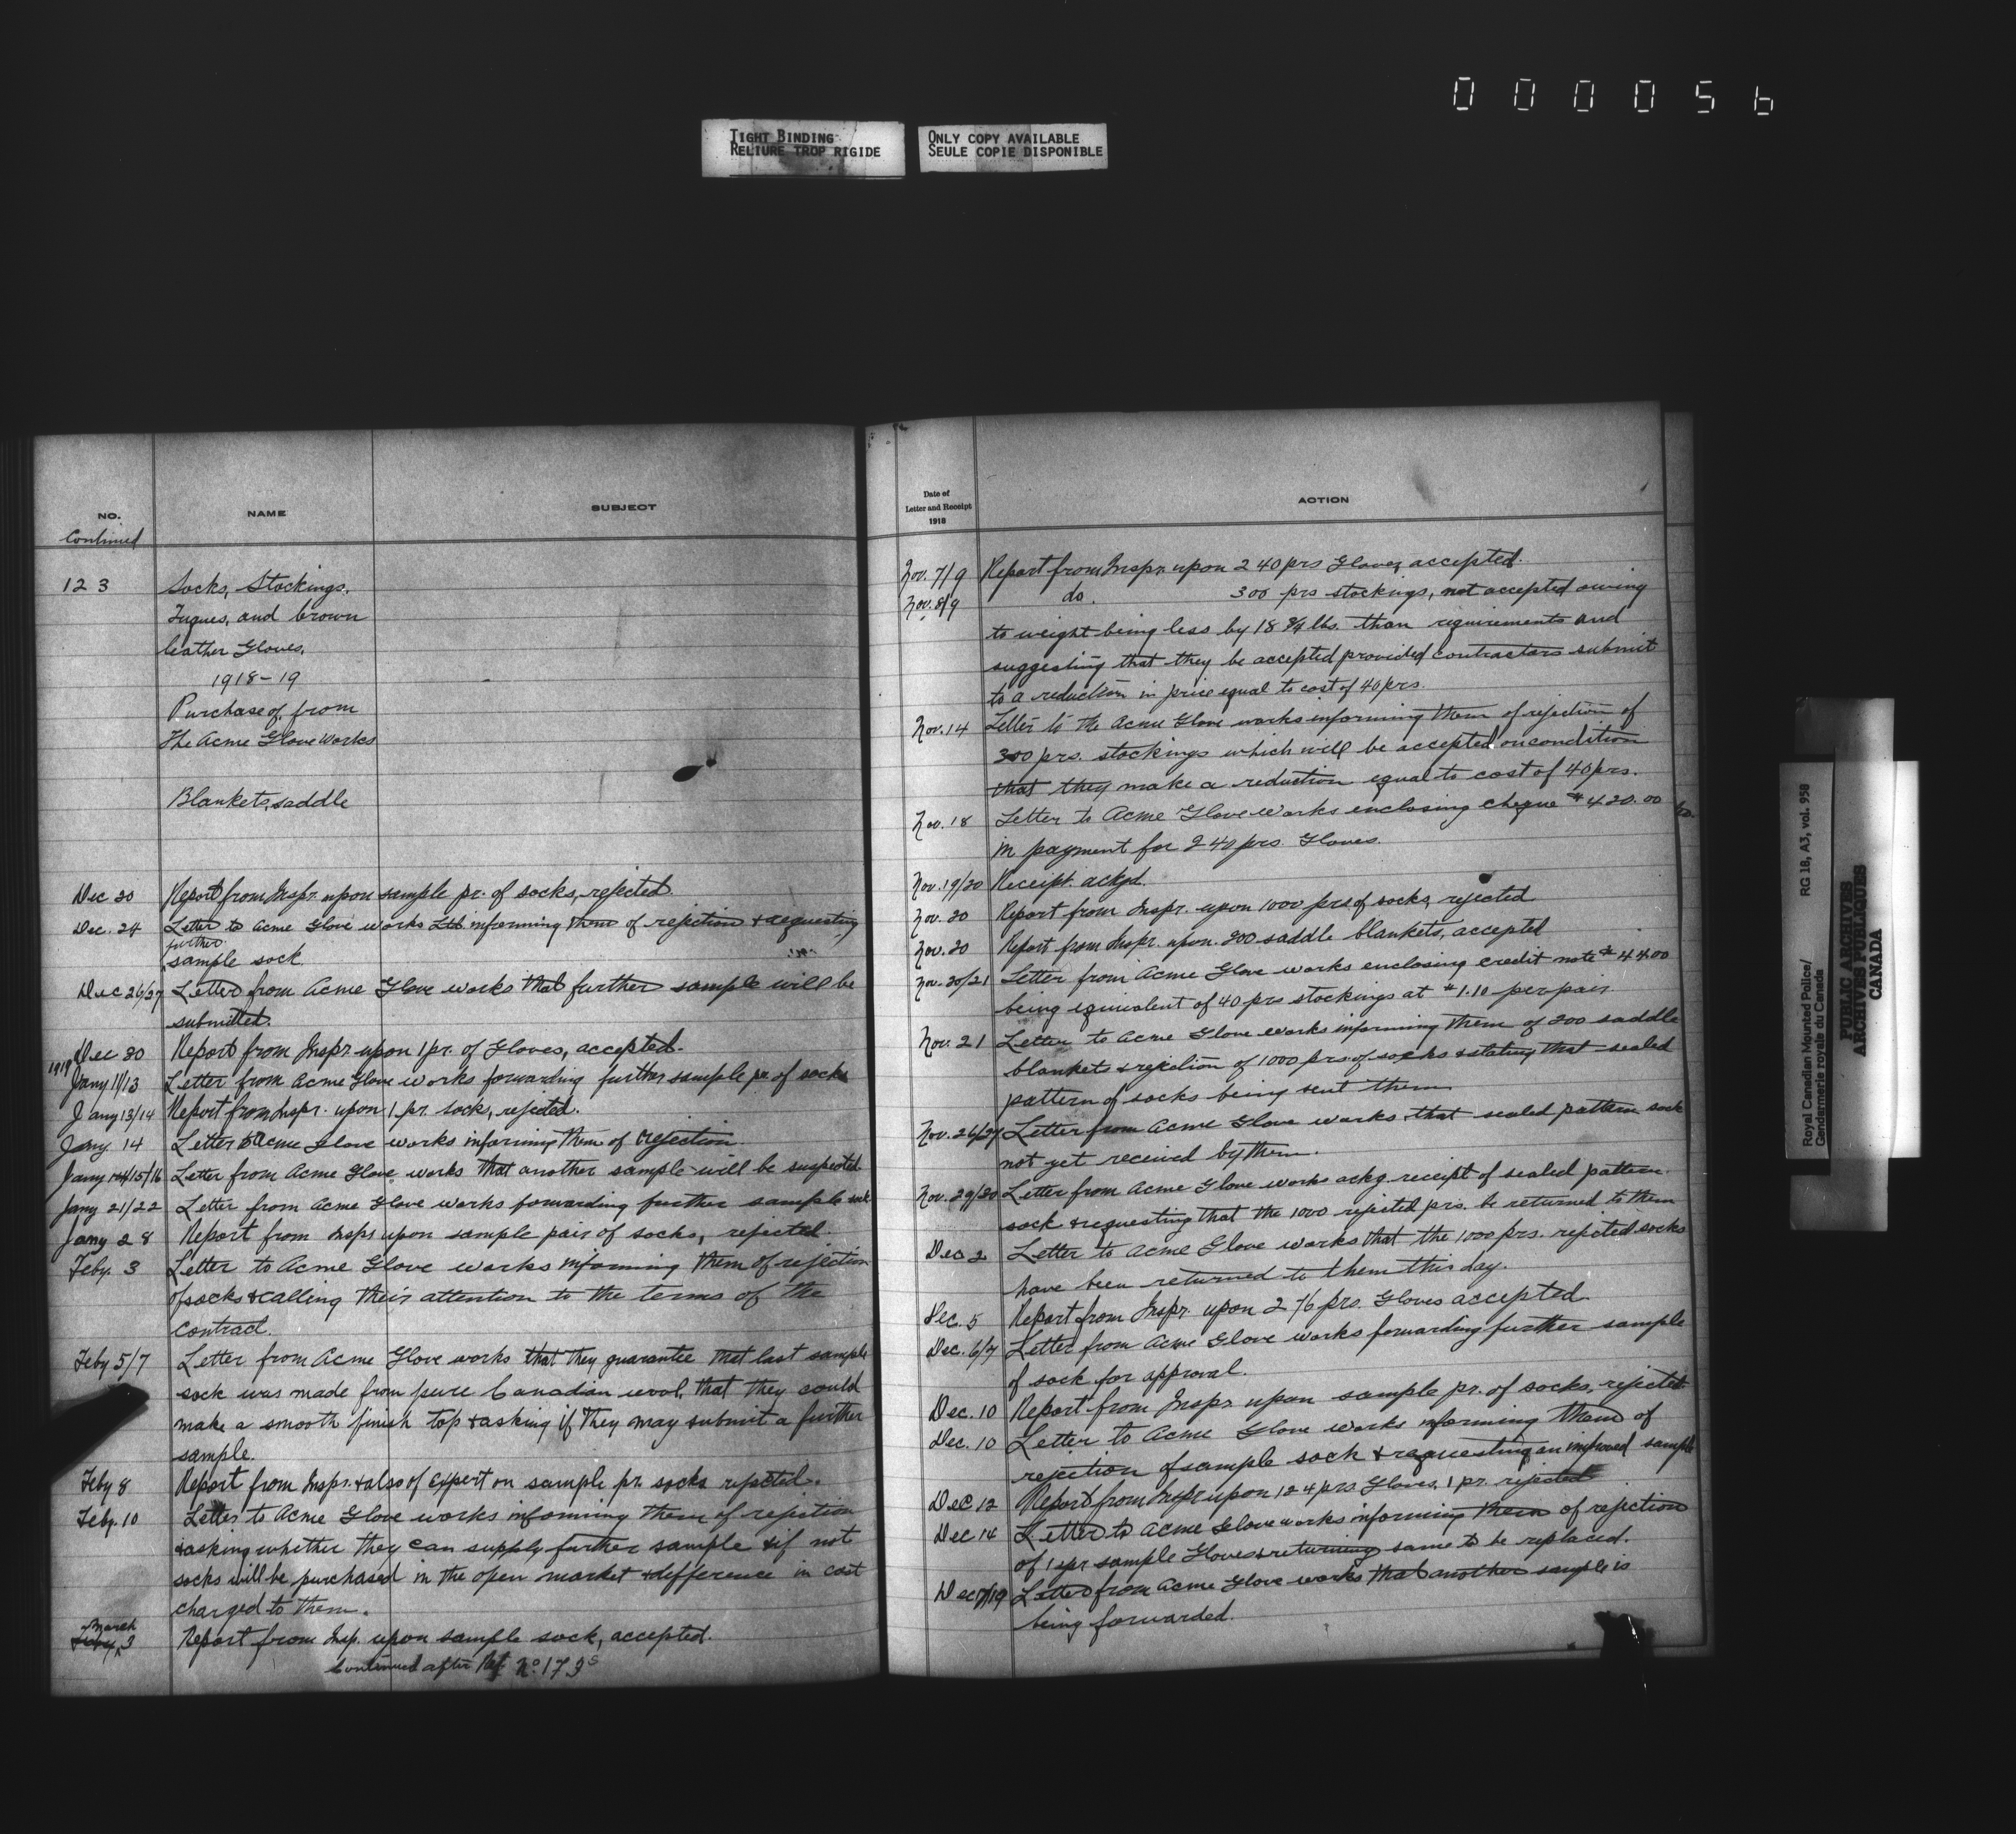 000056
TIGHT BINDING
RELIURE TROP RIGIDE
ONLY COPY AVAILABLE
SEULE COPIE DISPONIBLE
NO.
NAME
SUBJECT
Continued
123
Socks, Stockings,
Tuques, and brown
leather Gloves,
1918-19
Purchase of, from
The Acme Glove Works
Blankets, saddle
Dec 20 Report from Inspr. upon sample pr. of socks, rejected.
Dec. 24 Letter to Acme Glove works informing them of rejection & requesting
further
sample sock.
Dec 26/27 Letter from Acme Glove works that further sample will be
submitted.
Dec 30 Report from Inspr. upon 1 pr. of Gloves, accepted.
1919
Jany 11/13 Letter from Acme Glove works forwarding further sample pr. of socks
Jany 13/14 Report from Inspr. upon 1 pr. socks, rejected.
Jany. 14 Letter to Acme Glove works informing them of rejection.
Jany 14/15/16 Letter from Acme Glove works that another sample will be
Jany 21/22 Letter from Acme Glove works forwarding further sample sock
Jany 28 Report from Inspr upon sample pair of socks, rejected.
Feby. 3 Letter to Acme Glove works informing them of rejection
of socks & calling their attention to the terms of the
contract.
Feby 5/7 Letter from Acme Glove works that they guarantee that last sample
sock was made from pure Canadian wool, that they could
make a smooth finish top & asking if they may submit a further
sample.
Feby 8 Report from Inspr. & also of expert on sample pr. socks rejected.
Feby. 10 Letter to Acme Glove works informing them of rejection
& asking whether they can supply further sample & if not
socks will be purchased in the open market & difference in cost
charged to them.
March
Feby 3 Report from Insp. upon sample sock, accepted.
Continued after Ref. No. 173s
Date of
Letter and Receipt
1918
ACTION
Nov. 7/9 Report from Inspr. upon 240 prs Gloves accepted.
Nov. 8/9 do. 300 prs stockings, not accepted owing
to weight being less by 18 3/4 lbs. than requirements and
suggesting that they be accepted provided contractors submit
to a reduction in price equal to cost of 40 prs.
Nov. 14 Letter to the Acme Glove works informing them of rejection of
300 prs. stockings which will be accepted on condition
that they make a reduction equal to cost of 40 prs.
Nov. 18 Letter to Acme Glove Works enclosing cheque $420.00
in payment for 240 prs Gloves.
Nov. 19/20 Receipt. ackgd.
Nov. 20 Report from Inspr. upon 1000 prs of socks rejected
Nov. 20 Report from Inspr. upon 200 saddle blankets, accepted
Nov. 20/21 Letter from Acme Glove works enclosing credit note $44.00
being equivalent of 40 prs stockings at $1.10 per pair.
Nov. 21 Letter to Acme Glove works informing them of 200 saddle
blankets & rejection of 1000 prs. of socks & stating that sealed
pattern of socks being sent them
Nov. 26/27 Letter from Acme Glove works that sealed pattern sock
not yet received by them.
Nov. 29/30 Letter from Acme Glove works ackg receipt of sealed pattern
sock & requesting that the 1000 rejected prs. be returned to them
Dec 2 Letter to Acme Glove works that the 1000 prs. rejected socks
have been returned to them this day.
Dec. 5 Report from Inspr. upon 276 prs. Gloves accepted.
Dec. 6/7 Letter from Acme Glove works forwarding further sample
of sock for approval.
Dec. 10 Report from Inspr upon sample pr. of socks, rejected
Dec. 10 Letter to Acme Glove works informing them of
rejection of sample sock & requesting an improved sample
Dec 12 Report from Inspr upon 124 prs. Gloves, 1 pr. rejected
Dec 14 Letter to Acme Glove works informing them of rejection
of 1 pr sample Gloves & returning same to be replaced.
Dec 17/19 Letter from Acme Glove works that another sample is
being forwarded.
Royal Canadian Mounted Police/
Gendarmerie royale du Canada
RG 18, A3, vol. 958
PUBLIC ARCHIVES
ARCHIVES PUBLIQUES
CANADA